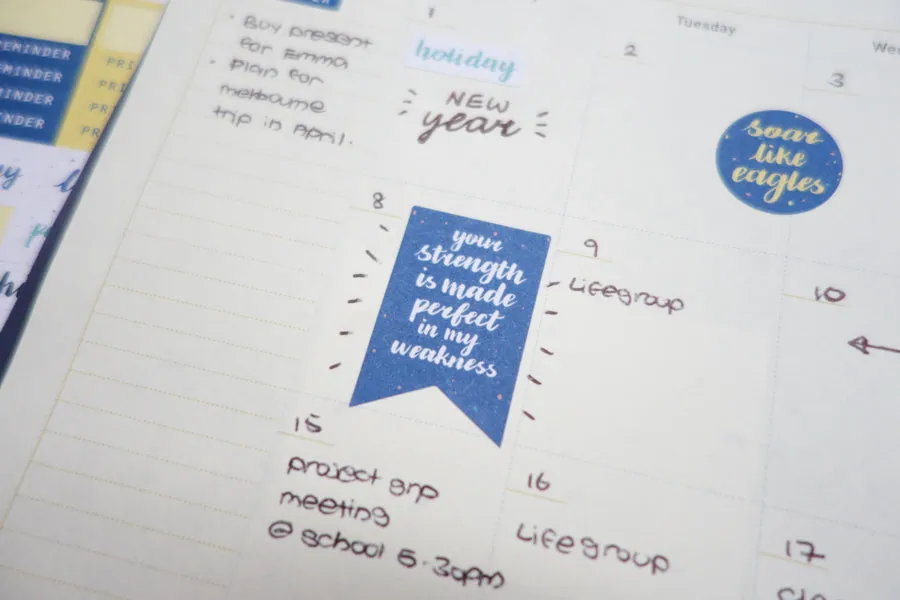 REMINDER
REMINDER
REMINDER
REMINDER
PRI
PRI
PRI
PRI
• Buy present
for Emma
• Plan for
melbourne
trip in April.
1
holiday
NEW
year
Tuesday
2
We
3
soar
like
eagles
8
your
strength
is made
perfect
in my
weakness
9
Lifegroup
10
15
project grp
meeting
@ school 5.30pm
16
Lifegroup
17